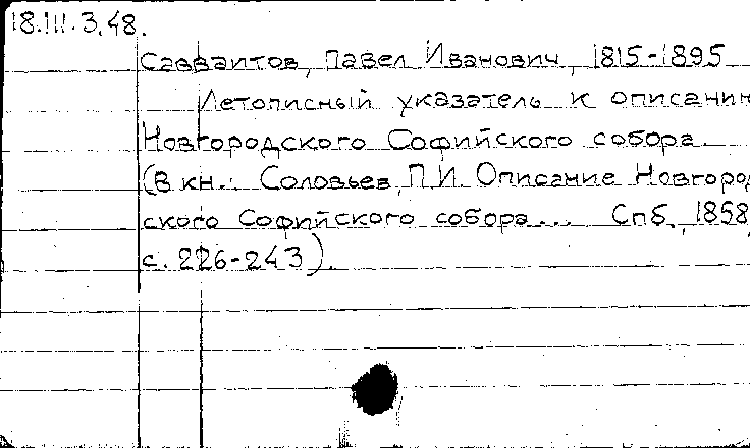 18.III.3.48.
Савваитов, Павел Иванович, 1815-1895
Летописный указатель к описанию
Новгородского Софийского собора.
(В кн.: Соловьев, П.И. Описание Новгород
ского Софийского собора... Спб., 1858,
с. 226-243).